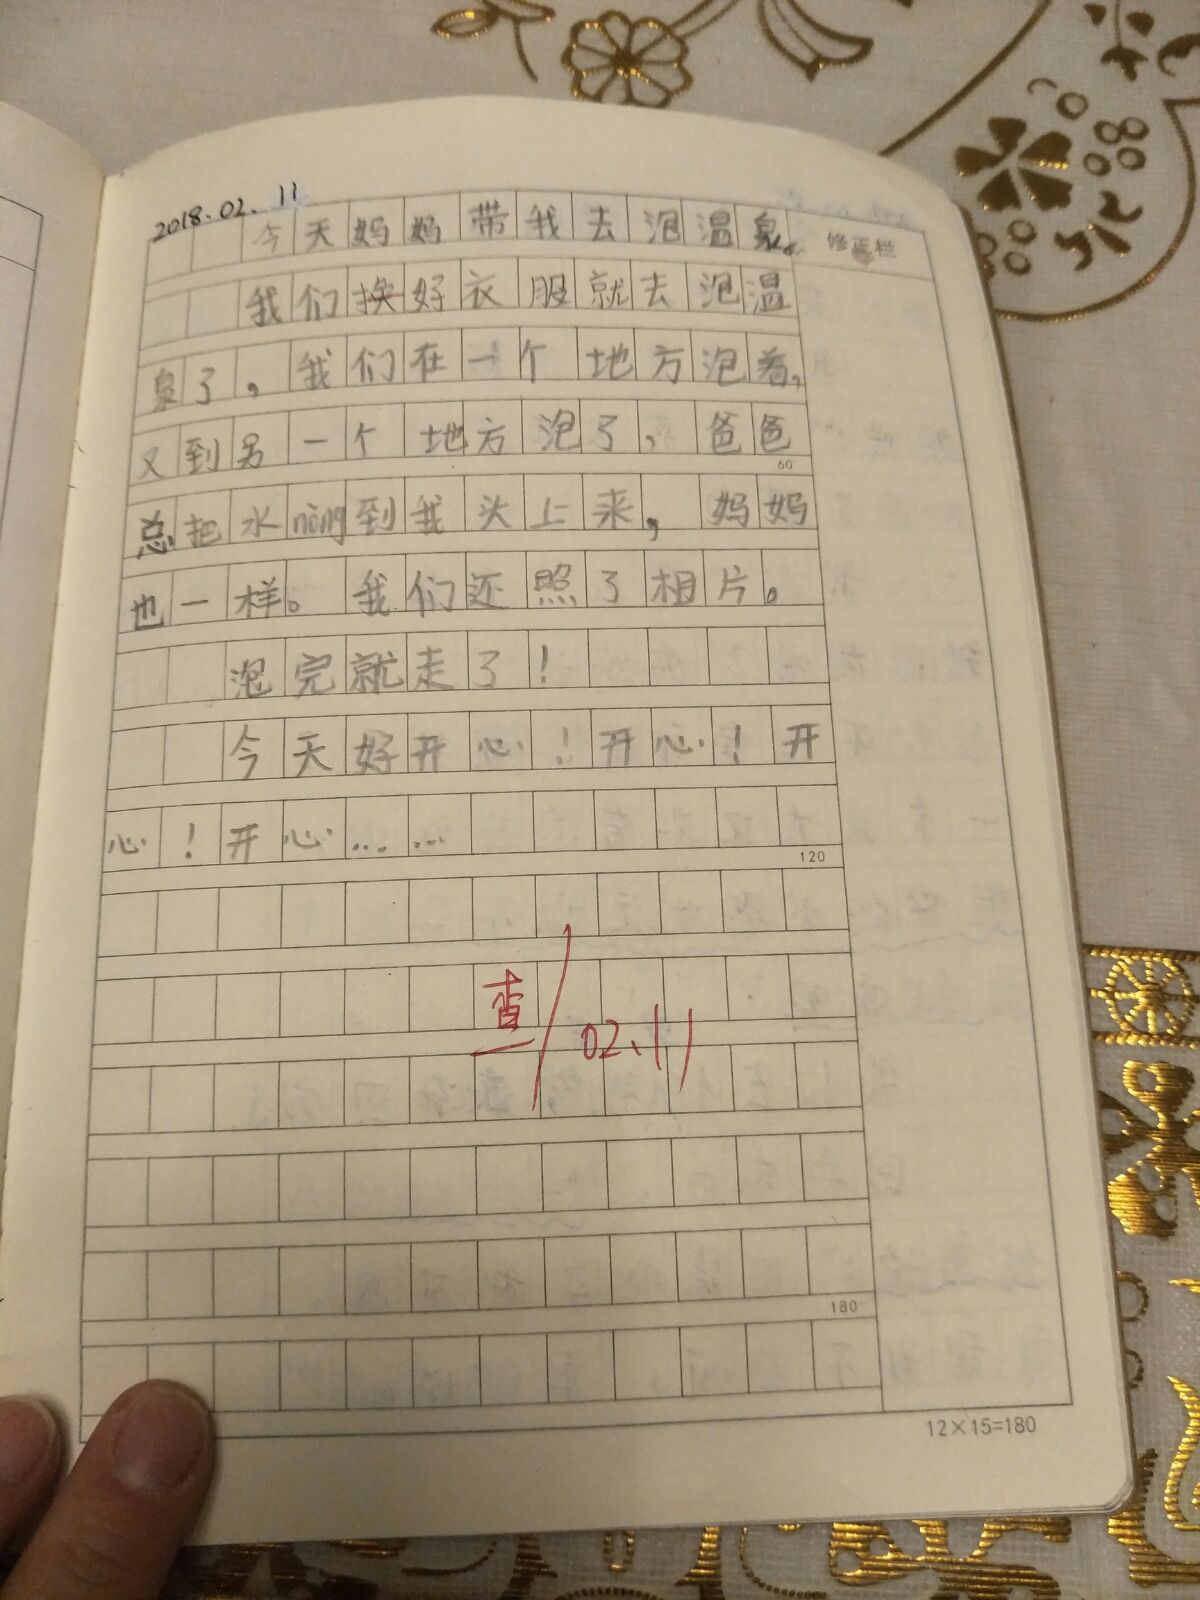 2018.02.11
今天妈妈带我去泡温泉。
修正栏
我们换好衣服就去泡温
泉了，我们在一个地方泡着，
又到另一个地方泡了，爸爸
60
总把水nòng到我头上来，妈妈
也一样。我们还照了相片。
泡完就走了！
今天好开心！开心！开
心！开心……
120
查 02.11
180
12×15=180